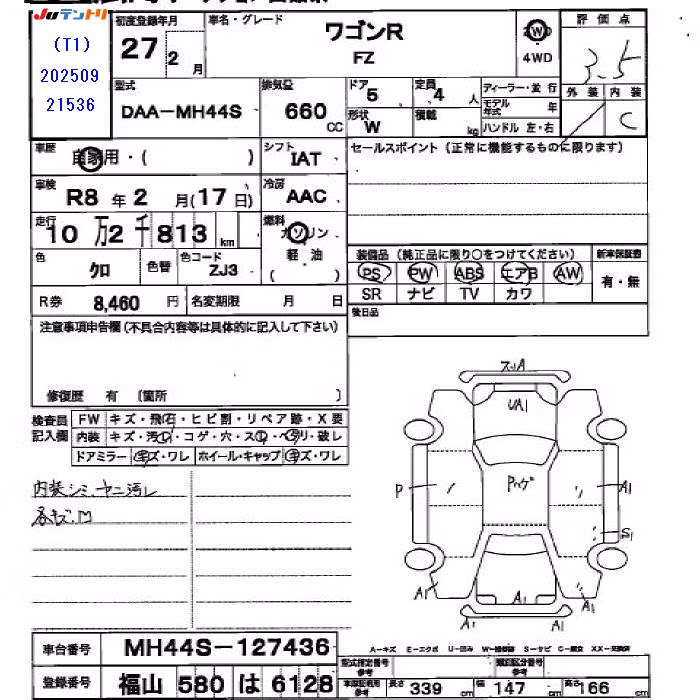 Juテントリ
(T1)
202509
21536
初度登録年月
27年2月
車名・グレード
ワゴンR
FZ
2W
4WD
評価点
3.5
外装 内装
C
型式
DAA-MH44S
排気量
660 CC
ドア 5
定員 4 人
形状 W
積載 kg
ディーラー・並行
モデル年式 年
ハンドル 左・右
車歴
自家用・( )
シフト
IAT
セールスポイント (正常に機能するものに限ります)
車検
R8 年 2 月(17日)
冷房
AAC
走行
10万2千813 km
燃料
ガソリン
軽・油
( )
色
クロ
色替
色コード
ZJ3
装備品 (純正品に限り〇をつけてください)
新車保証書
PS PW ABS エアB AW
SR ナビ TV カワ
有・無
R券 8,460 円
名変期限 月 日
後日品
注意事項申告欄 (不具合内容等は具体的に記入して下さい)
修復歴 有 〔箇所 〕
検査員記入欄
FW キズ・飛石・ヒビ割・リペア跡・X要
内装 キズ・汚れ・コゲ・穴・スレ・ベタリ・破レ
ドアミラー キズ・ワレ ホイール・キャップ キズ・ワレ
内装シミ、ヤニ汚レ
各キズ、M
スリA
UA1
P
A1
S1
A1
A1
A1
A1
A-キズ E-エクボ U-凹み W-補修跡 S-サビ C-腐食 XX-交換済
車台番号
MH44S-127436
登録番号
福山 580 は 6128
型式指定番号 参考
類別区分番号 参考
車体証利用 参考
長さ 339 cm
幅 147 cm
高さ 166 cm